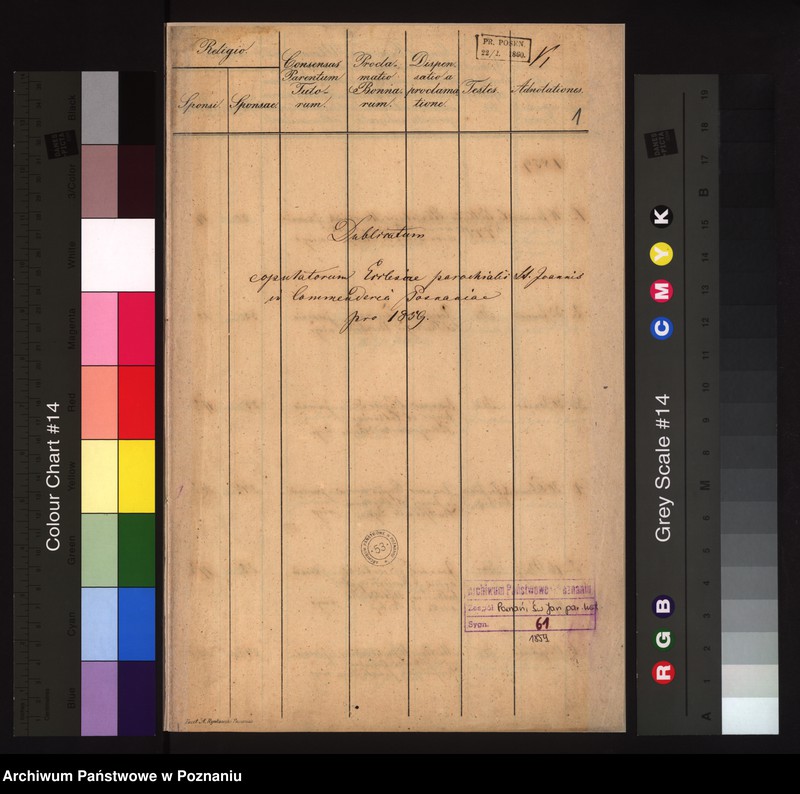 Religio.
Sponsi.
Sponsae.
Consensus
Parentum
Tuto-
rum.
Procla-
matio
Bonna-
rum.
Dispen-
satio a
proclama-
tione.
Testes.
Adnotationes.
PR. POSEN.
22/1. 1860.
1
Dublicatum
copulatorum Ecclesiae parochialis St. Joannis
in Commenderia Posnaniae
pro 1859.
53
Archiwum Państwowe w Poznaniu
Zespół Poznań, Św Jan par. kat
Sygn. 61
1859
Colour Chart #14
Black
3/Color
White
Magenta
Red
Yellow
Green
Cyan
Blue
Grey Scale #14
R G B
C M Y K
A 1 2 3 4 5 6 M 8 9 10 11 12 13 14 15 B 17 18 19
Archiwum Państwowe w Poznaniu